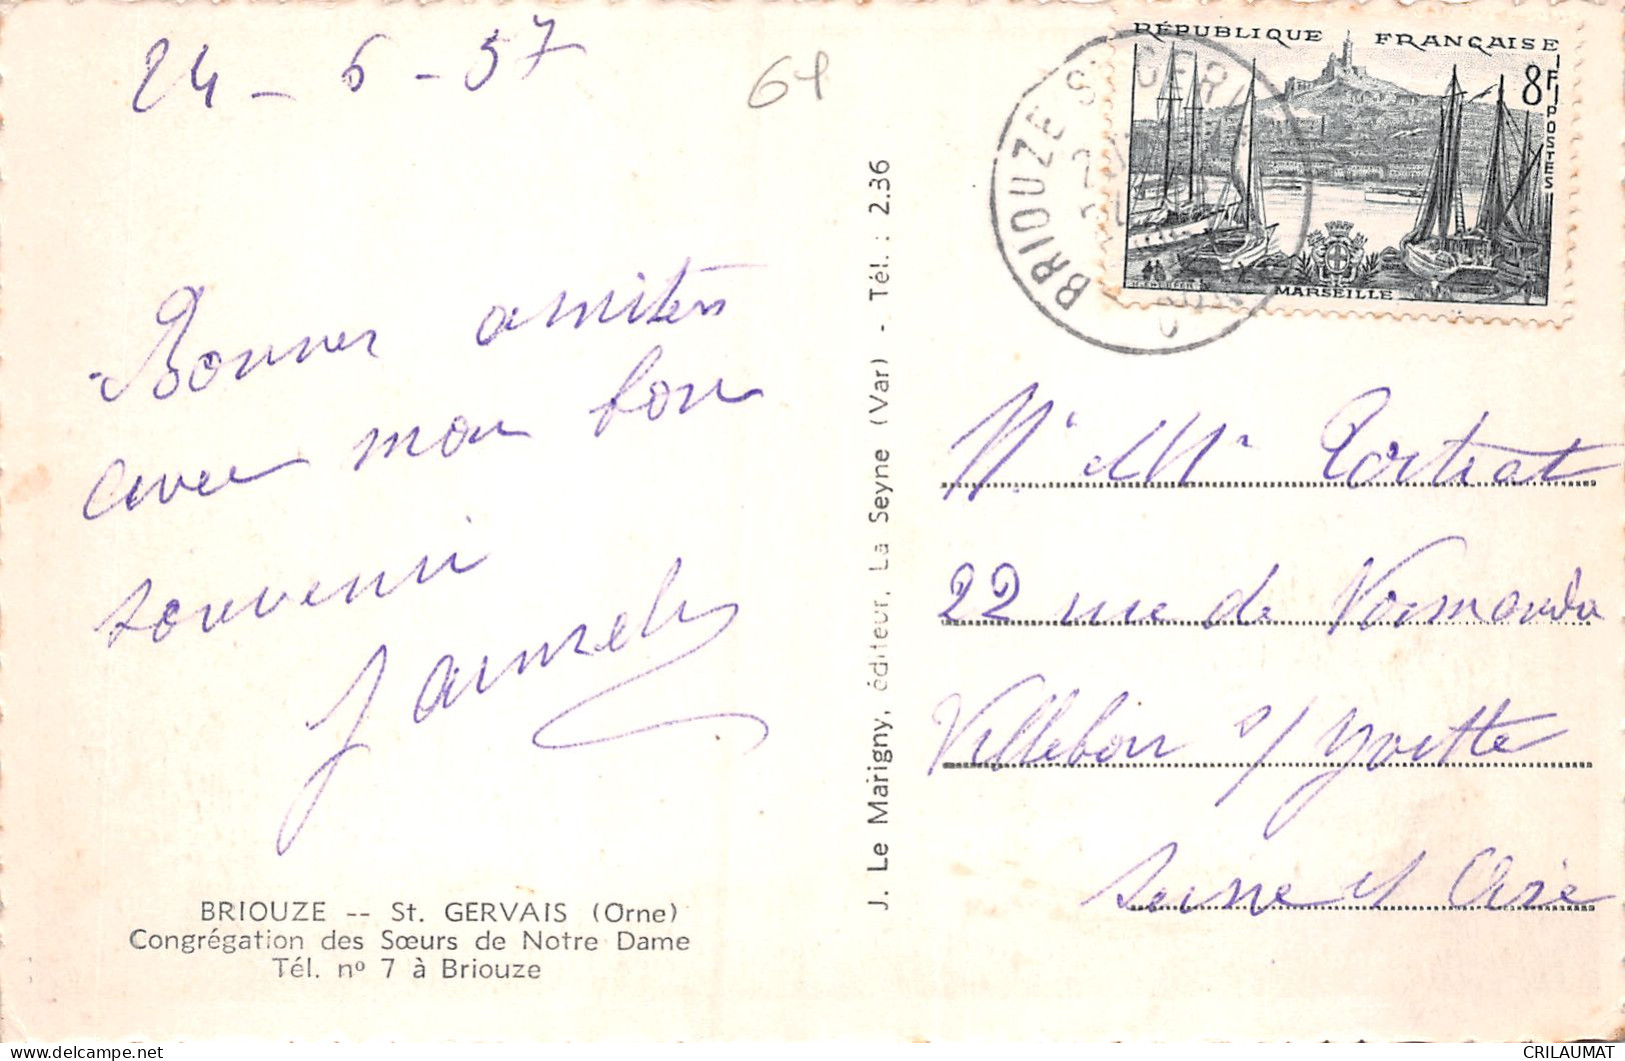 24 - 6 - 57
61
Bonnes amitiés
avec mon bon
souvenir
BRIOUZE -- St. GERVAIS (Orne)
Congrégation des Sœurs de Notre Dame
Tél. nº 7 à Briouze
J. Le Marigny, éditeur, La Seyne (Var) - Tél. : 2.36
RÉPUBLIQUE FRANÇAISE
8F
POSTES
MARSEILLE
BRIOUZE St GER
Mr et Mme Portrat
22 rue de Normandie
Villebon s/ Yvette
Seine et Oise
CRILAUMAT